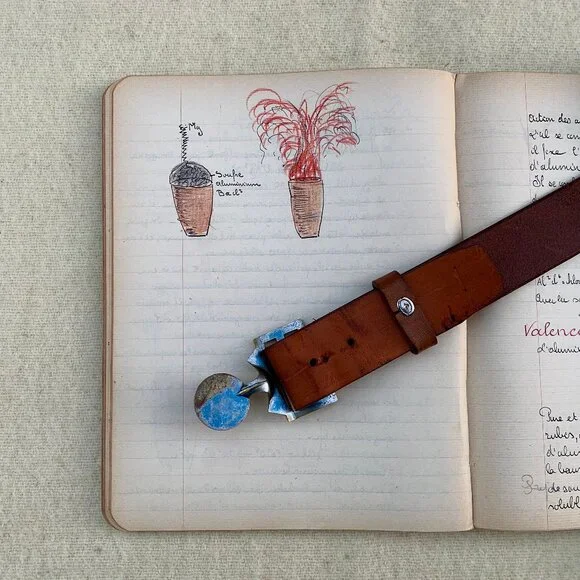 Mg
Soufre
aluminium
BaO²
action des a
qu'il se com
il fixe l'
d'alumin
Il se com
avec le s
Valence
d'alumin
Pure et
rubis,
d'alum
la bau
de sou
soluble